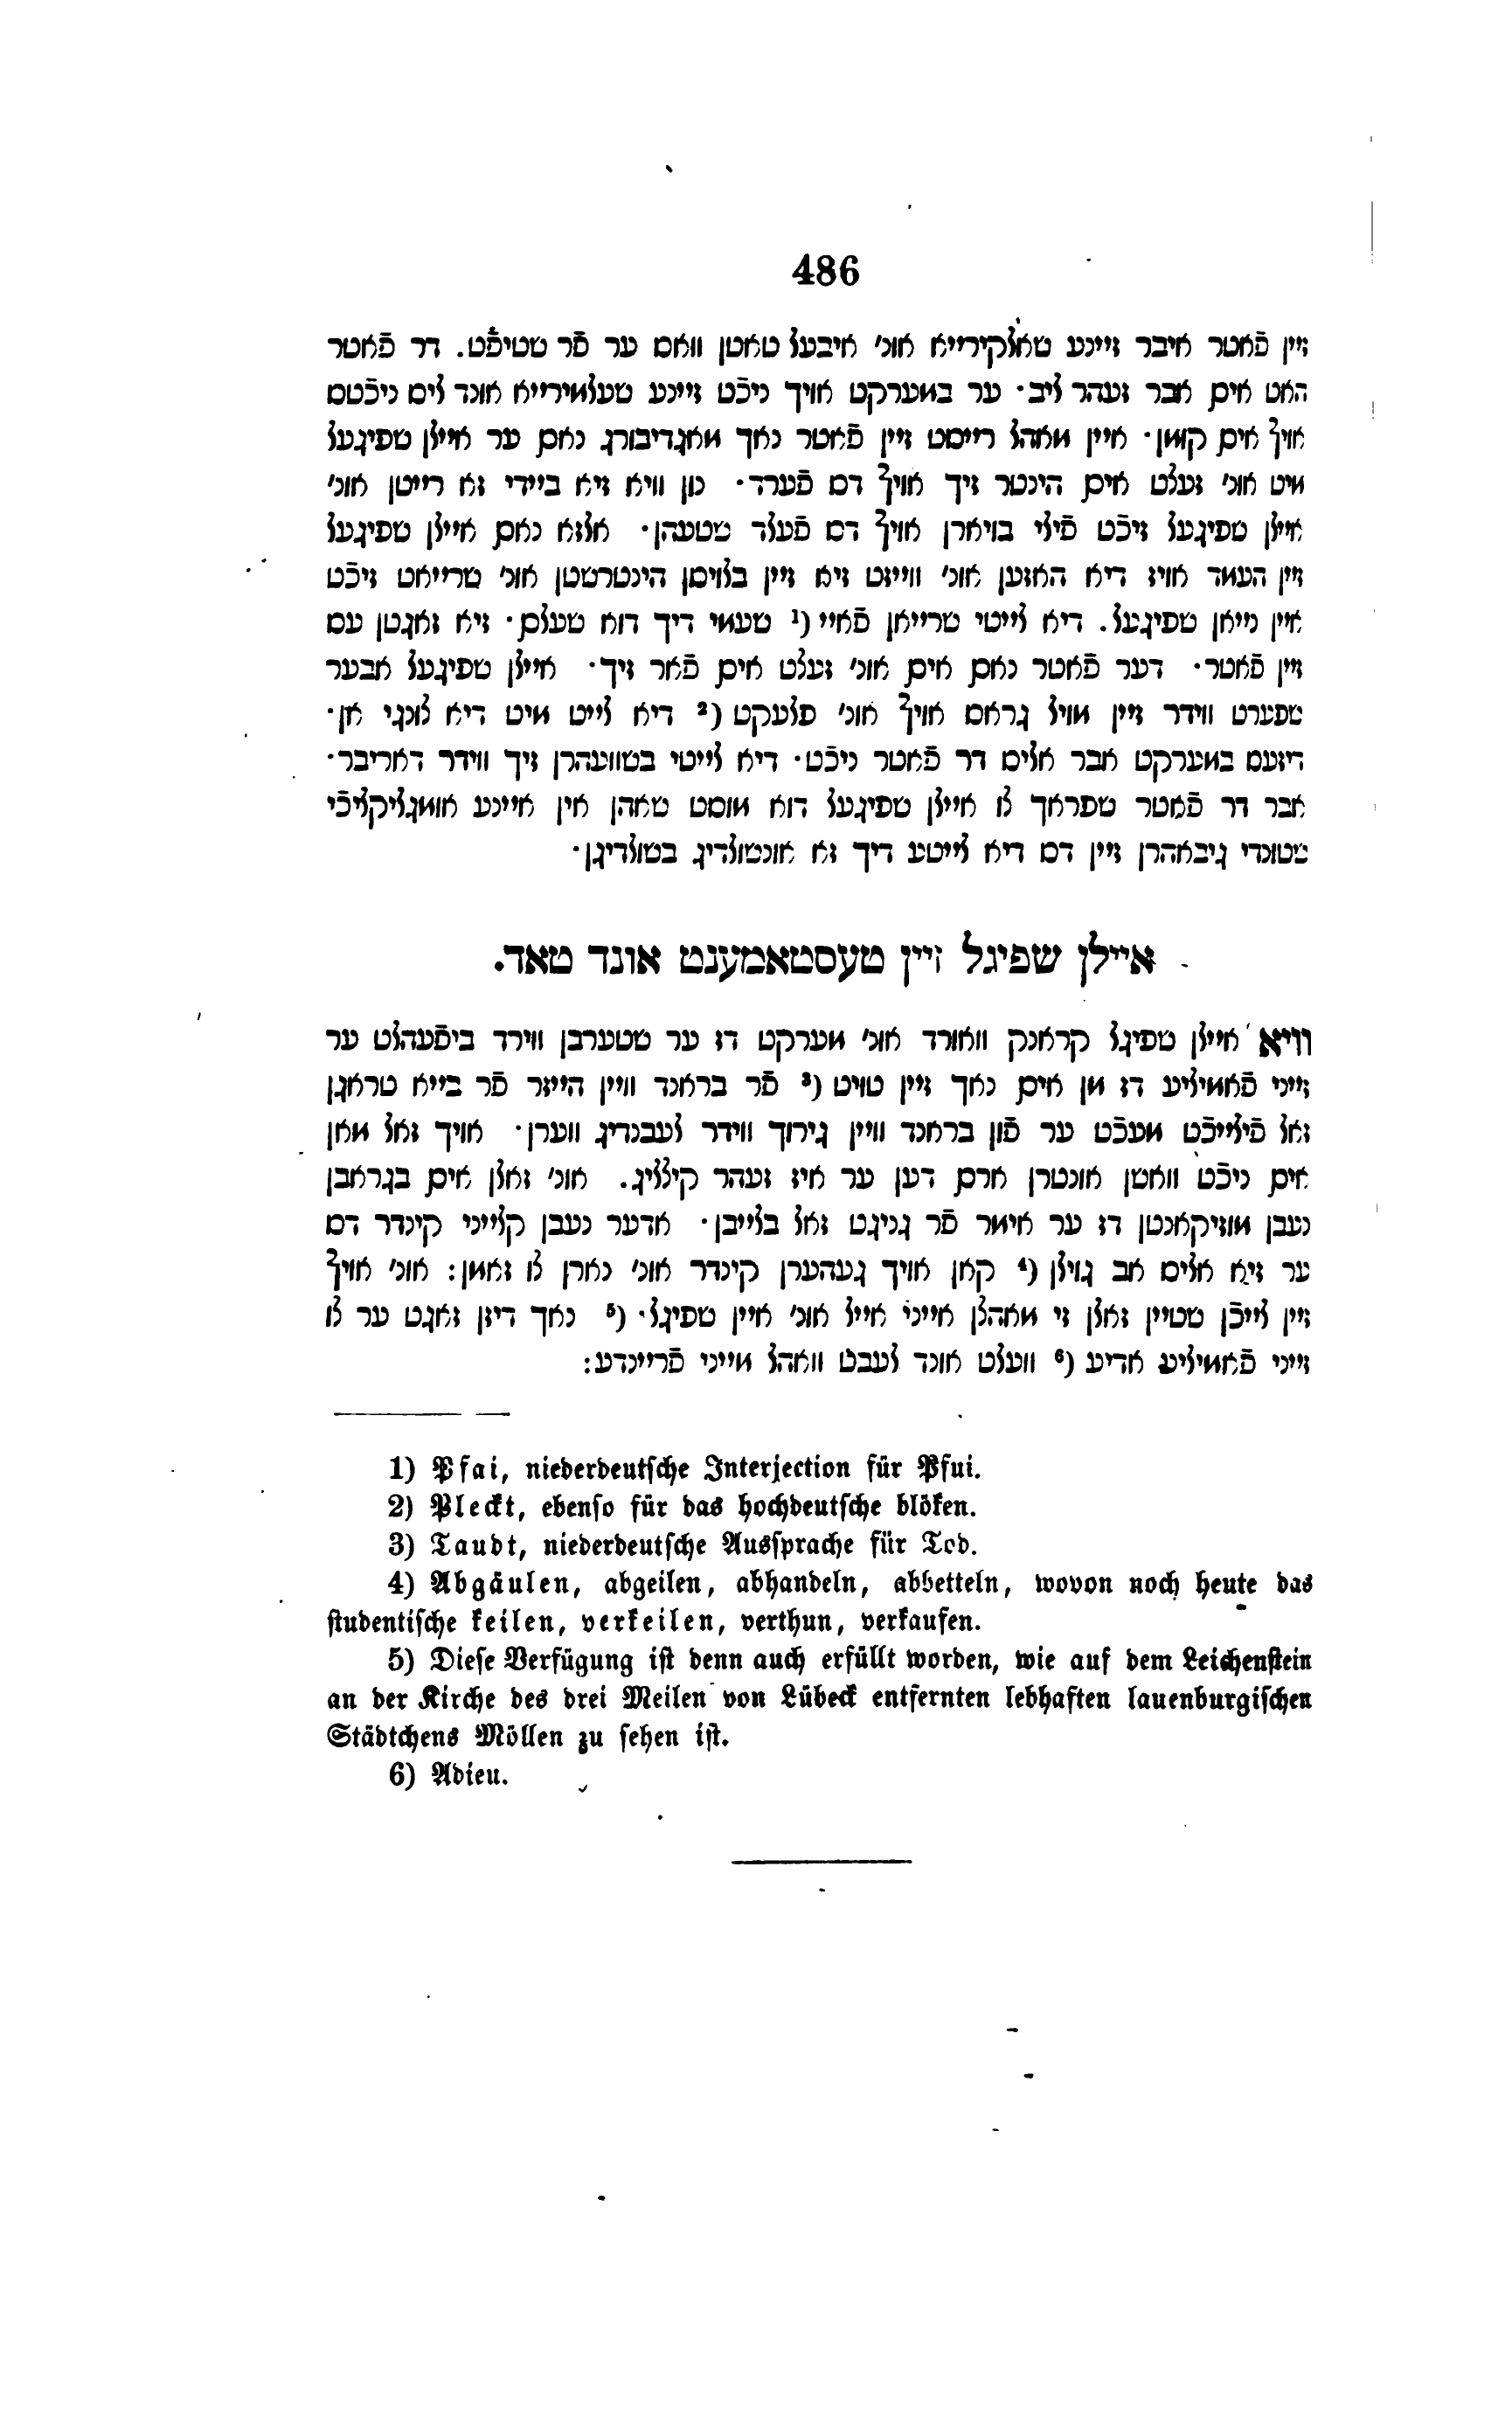 486
זיין פֿאטר איבר זיינע שאלקירייא אונ' איבעל טאטן וואס ער פֿר שטיפֿט. דר פֿאטר
האט אים אבר זעהר ליב· ער במערקט אויך ניכֿט זיינע שעלמירייא אונד ליס ניכֿטס
אויף אים קומן· איין מאהל רייסט זיין פֿאטר נאך מאגדיבורג נאם ער איילן שפיגעל
מיט אונ' זעלט אים הינטר זיך אויף דס פֿערד· נון וויא זיא ביידי זא רייטן אונ'
איילן שפיגעל זיכֿט פֿילי בויארן אויף דס פֿעלד שטעהן· אלזא נאם איילן שפיגעל
זיין העמד אויז דיא האזען אונ' ווייזט זיא זיין בלויסן הינטרשטן אונ' שרייאט זיכֿט
אין נייאן שפיגעל. דיא לייטי שרייאן פֿאיי (¹ שעמי דיך דוא שעלם· זיא זאגטן עס
זיין פֿאטר· דער פֿאטר נאם אים אונ' זעלט אים פֿאר זיך· איילן שפיגעל אבער
שפערט ווידר זיין מויל גראס אויף אונ' פלעקט (² דיא לייט מיט דיא לונגי אן·
דיזעס במערקט אבר אליס דר פֿאטר ניכֿט· דיא לייטי בשווערהן זיך ווידר דאריבר·
אבר דר פֿאטר שפראך לו איילן שפיגעל דוא מוסט שאהן אין איינע אומגליקליכֿי
שטונדי גיבאהרן זיין דס דיא לייטע דיך זא אונשולדיג בשולדיגן·
איילן שפיגל זיין טעסטאמענט אונד טאד.
וויא איילן שפיגל קראנק ווארד אונ' מערקט דז ער שטערבן ווירד ביפֿעהלט ער
זייני פֿאמיליע דז מן אים נאך זיין טויט (³ פֿר בראנד וויין הייזר פֿר בייא טראגן
זאל פֿילייכֿט מעכֿט ער פֿון בראנד וויין גירוך ווידר לעבנדיג ווערן· אויך זאל מאן
אים ניכֿט וואטן אונטרן ארם דען ער איז זעהר קילליג. אונ' זאלן אים בגראבן
נעבן מוזיקאנטן דז ער אימר פֿר גניגט זאל בלייבן· אדער נעבן קלייני קינדר דס
ער זיא אליס אב גוילן (⁴ קאן אויך געהערן קינדר אונ' נארן לו זאמן: אונ' אויף
זיין לייכֿן שטיין זאלן זי מאהלן אייני אייל אונ' איין שפיגל· (⁵ נאך דיזן זאגט ער לו
זייני פֿאמיליע אדיע (⁶ וועלט אונד לעבט וואהל מייני פֿריינדע:
1) Pfai, niederdeutſche Interjection für Pfui.
2) Pleckt, ebenſo für das hochdeutſche blöken.
3) Taudt, niederdeutſche Ausſprache für Tod.
4) Abgäulen, abgeilen, abhandeln, abbetteln, wovon noch heute das
ſtudentiſche keilen, verkeilen, verthun, verkaufen.
5) Dieſe Verfügung iſt denn auch erfüllt worden, wie auf dem Leichenſtein
an der Kirche des drei Meilen von Lübeck entfernten lebhaften lauenburgiſchen
Städtchens Möllen zu ſehen iſt.
6) Adieu.